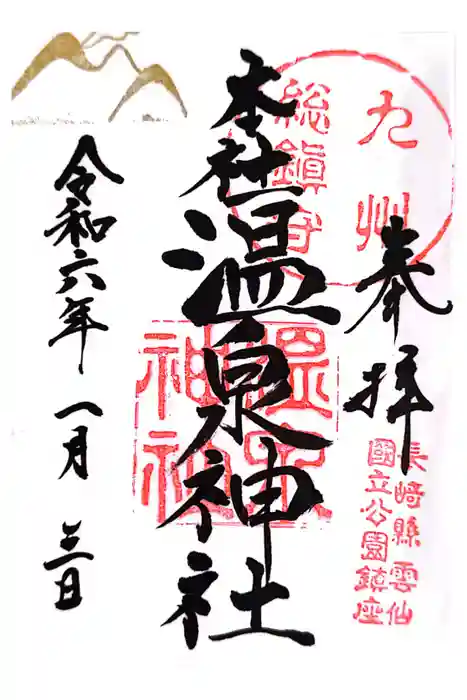 奉拝
九州
総鎮守
長崎縣雲仙
國立公園鎮座
本社温泉神社
温泉
神社
令和六年一月三日